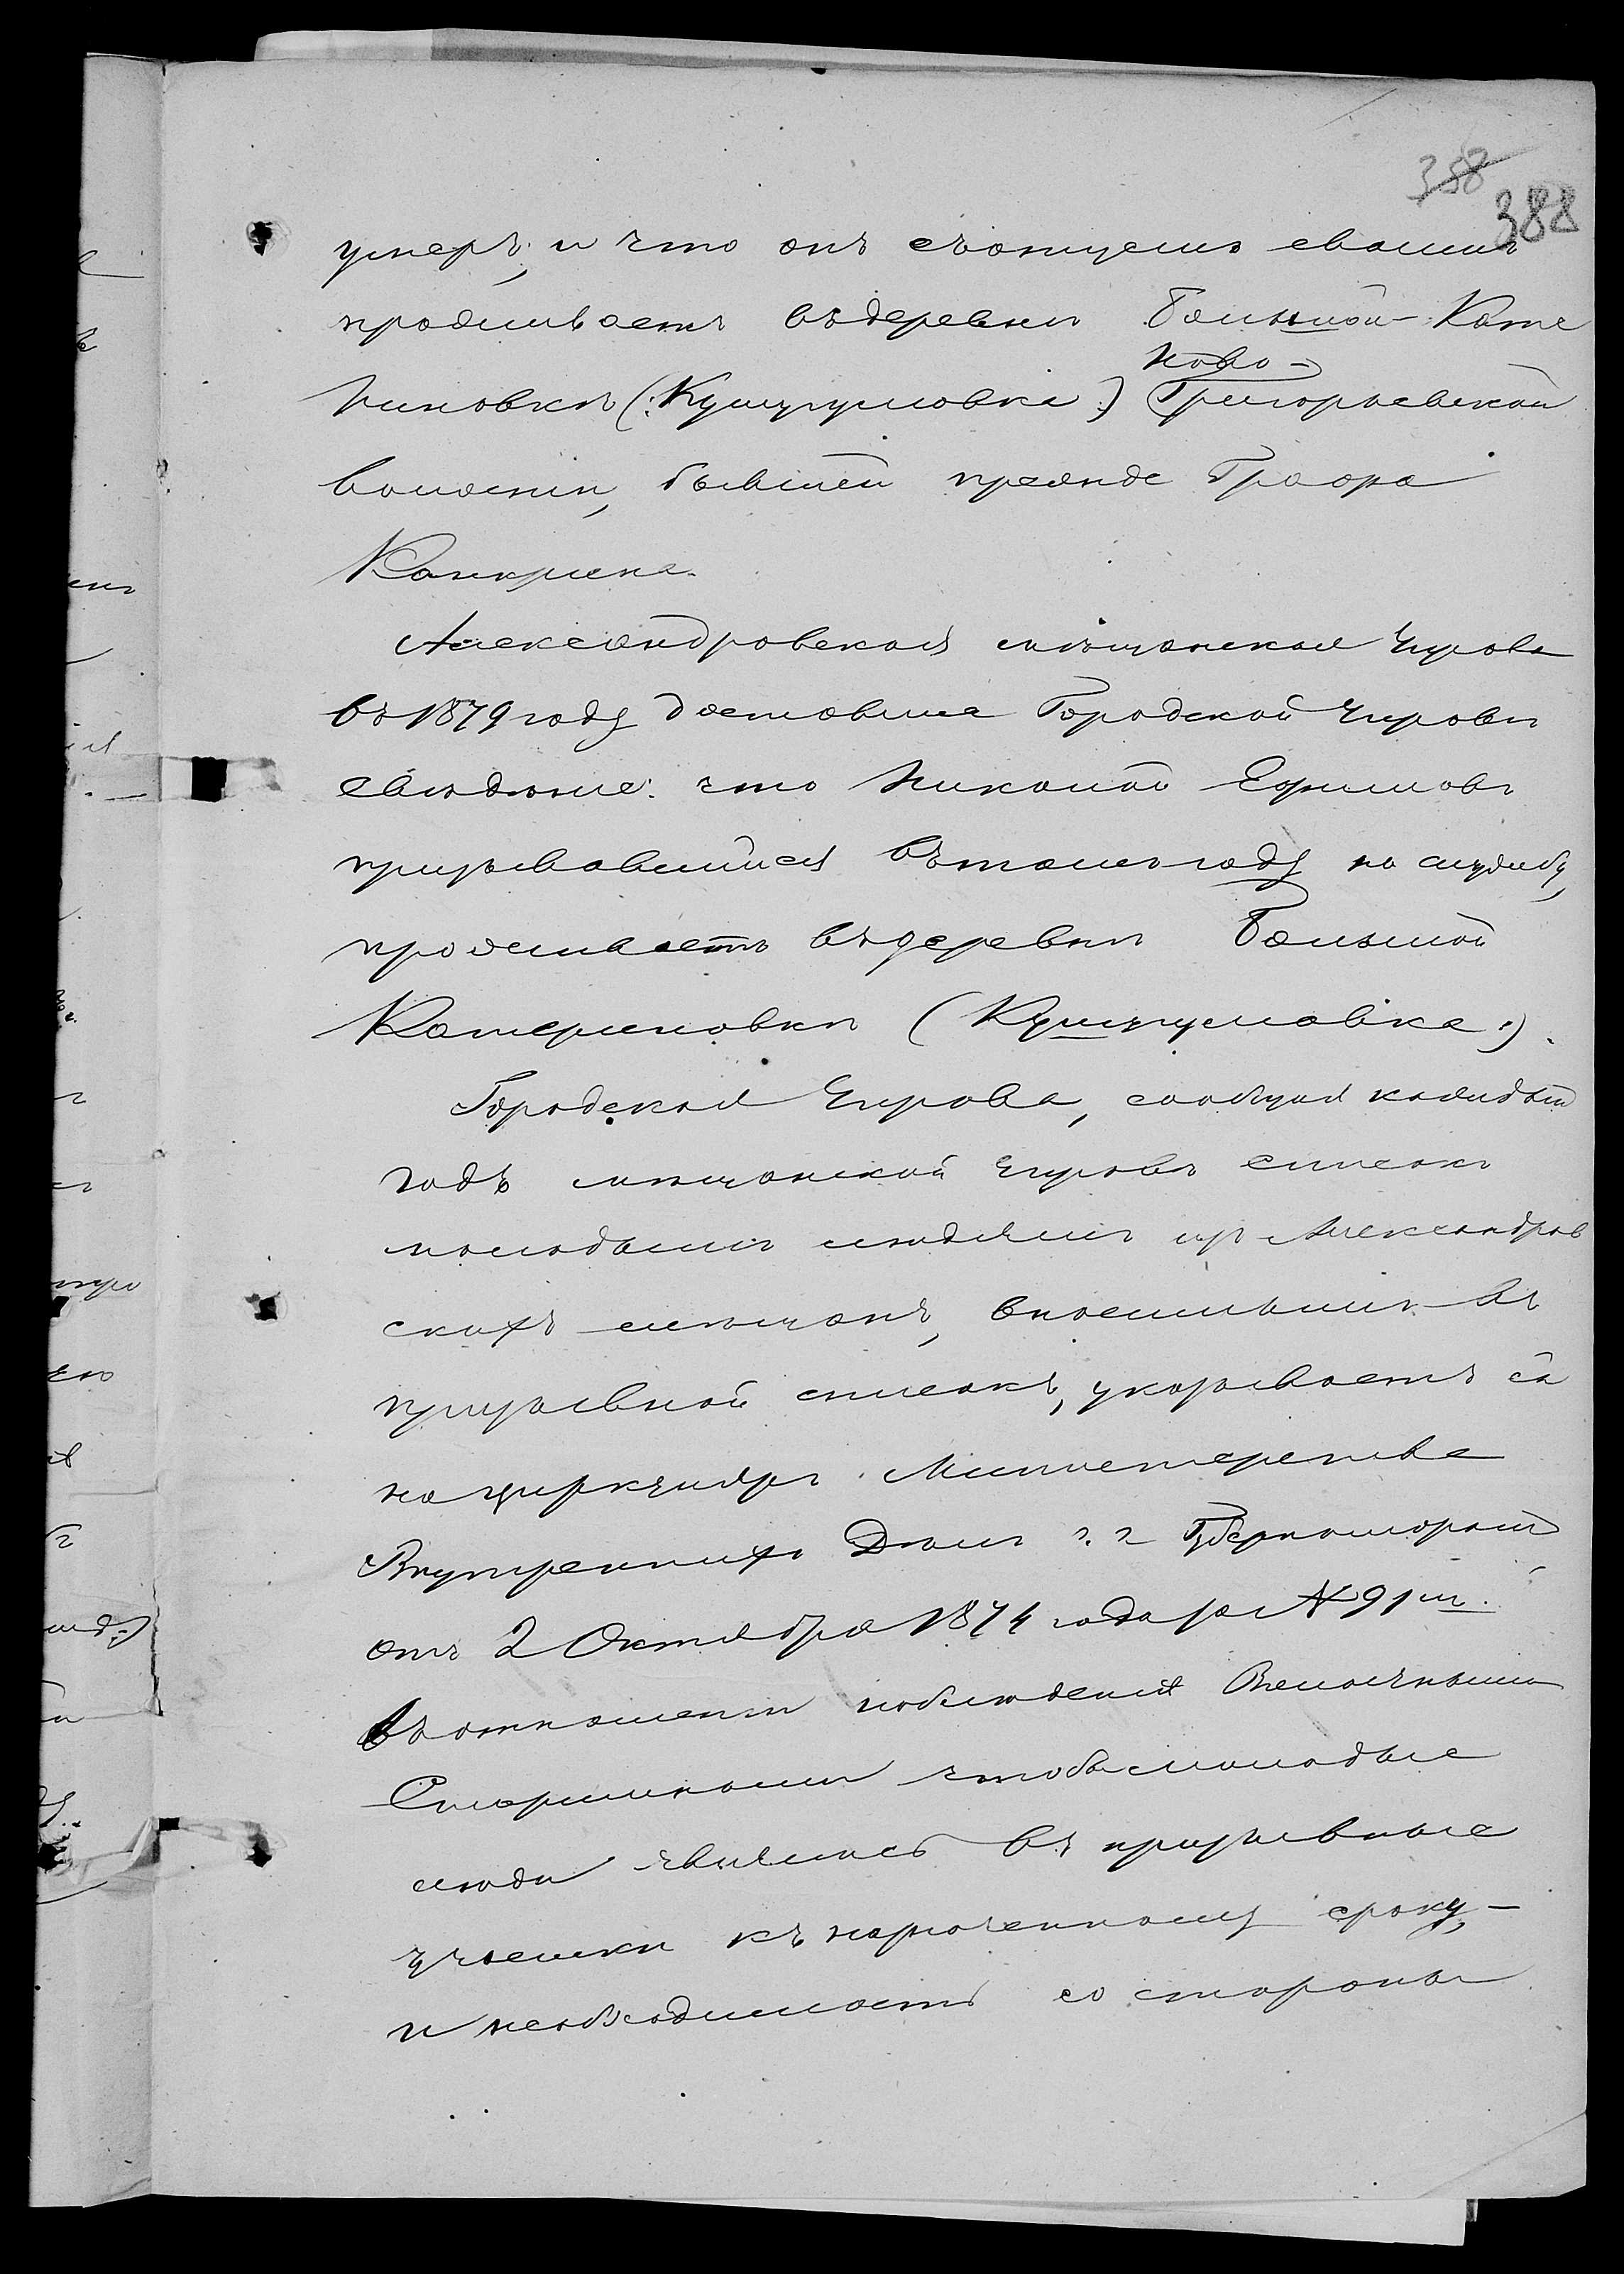 358
388
умеръ, и что онъ съ отцемъ своимъ
проживаетъ въ деревнѣ Большой Кате
Ново-
риновкѣ (: Кушугумовка :) Григорьевской
волости, бывшей прежде Графа
Канкрина.
Александровская мѣщанская Управа
въ 1879 году доставила Городской Управѣ
свѣдѣніе: что Николай Ефимовъ
призывавшійся въ томъ году на службу,
проживаетъ въ деревнѣ Большой
Катериновкѣ (Кушугумовка:).
Городская Управа, сообщая каждый
годъ мѣщанской Управѣ списокъ
молодымъ людямъ изъ Александров
скихъ мѣщанъ, внесеннымъ въ
призывной списокъ, указываетъ ей
на циркуляръ Министерства
Внутреннихъ Дѣлъ г.г. Губернаторамъ
отъ 2 Октября 1874 года за № 91 м.
въ отношеніи наблюденія Волостными
Старшинами чтобы молодые
люди явились въ призывные
участки къ назначенному сроку,-
и необходимость со стороны